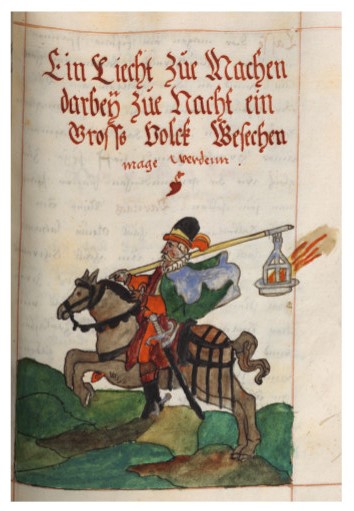 Ein Liecht Züe Machen
darbeÿ Züe Nacht ein
Gross Volck Besechen
mage Werdenn